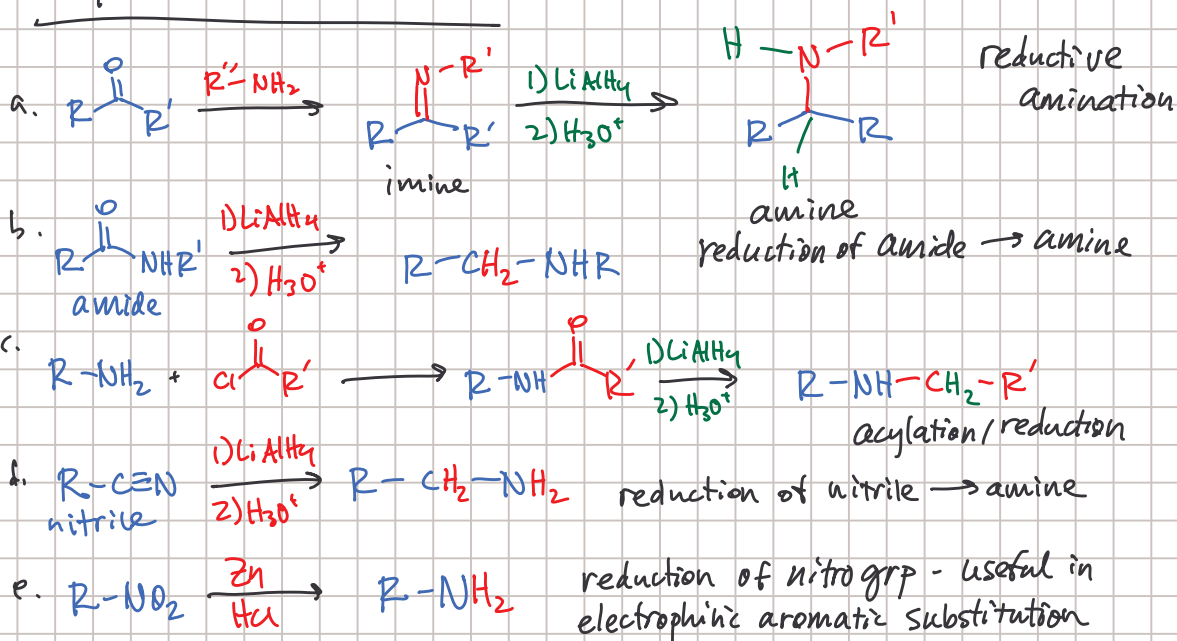 a. O R R' R''-NH2 N-R' R R' imine 1) LiAlH4 2) H3O+ H-N-R' R R H amine reductive
amination
b. O R NHR' amide 1) LiAlH4 2) H3O+ R-CH2-NHR reduction of amide → amine
c. R-NH2 + O Cl R' → R-NH O R' 1) LiAlH4 2) H3O+ R-NH-CH2-R'
acylation/reduction
d. R-C≡N nitrile 1) LiAlH4 2) H3O+ R-CH2-NH2 reduction of nitrile → amine
e. R-NO2 Zn HCl R-NH2 reduction of nitro grp - useful in
electrophinic aromatic substitution